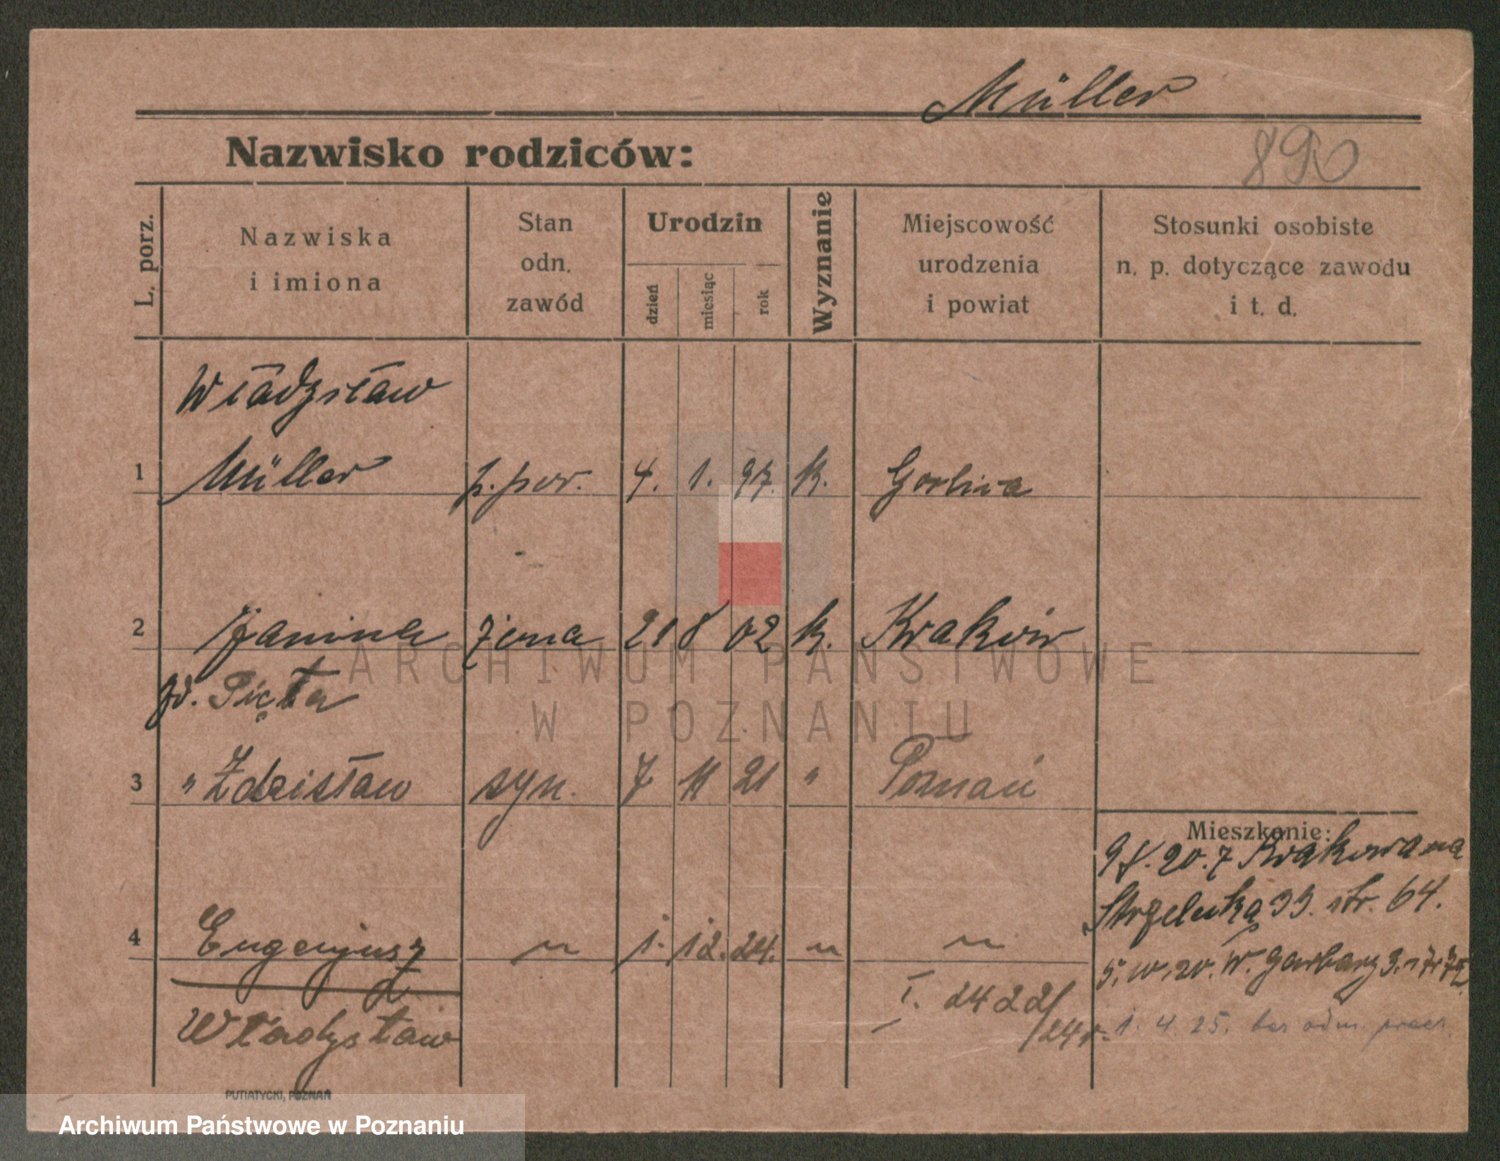 Müller
Nazwisko rodziców:
L. porz.
Nazwiska
i imiona
Stan
odn.
zawód
Urodzin
dzień
miesiąc
rok
Wyznanie
Miejscowość
urodzenia
i powiat
Stosunki osobiste
n. p. dotyczące zawodu
i t. d.
Władysław
1 Müller p.por. 4. 1. 97. k. Gorlica
2 Janina żona 21 8 02 k. Kraków
ARCHIWUM PAŃSTWOWE
W POZNANIU
Pięta
3 " Zdzisław syn. 7 11 21 " Poznań
Mieszkanie:
20. 7 Krakowa na
Strzelecką 33. str. 64.
4 Eugenjusz " 1. 12. 24. " "
5. 10. 20. W. Garbary 3.
I. 24221
/24 r.
Władysław
1. 4. 25.
PUTIATYCKI, POZNAŃ
Archiwum Państwowe w Poznaniu